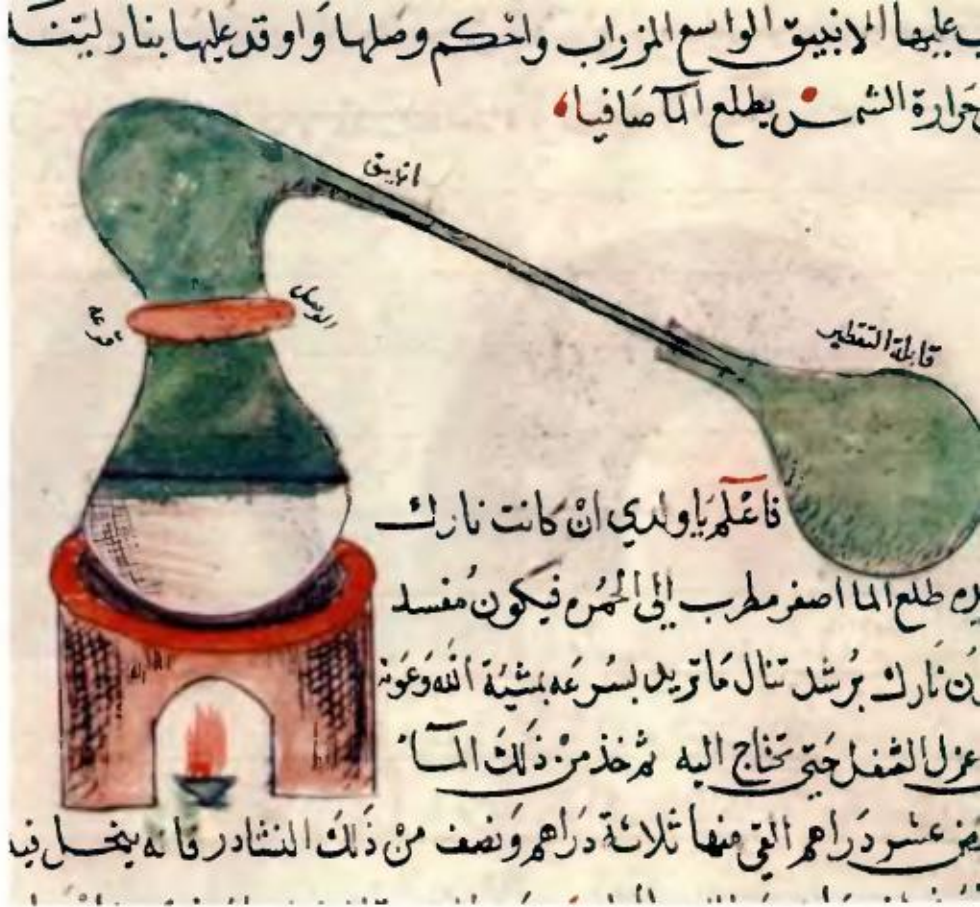 عليها الانبيق الواسع المزراب واحكم وصلها واوقد عليها بنار لينة
حرارة الشمس يطلع الما صافيا
انبيق
الوصل
قرعه
قابلة التقطير
فاعلم يا ولدي ان كانت نارك
طلع الما اصفر مطرب الى الحمره فيكون مفسد
نارك برشد تنال ما تريد بسرعه بمشية الله وعونه
عزل الثفل حتى تحتاج اليه ثم خذ من ذلك الماء
عشر دراهم القي منها ثلاثة دراهم ونصف من ذلك النشادر فانه ينحل فيه